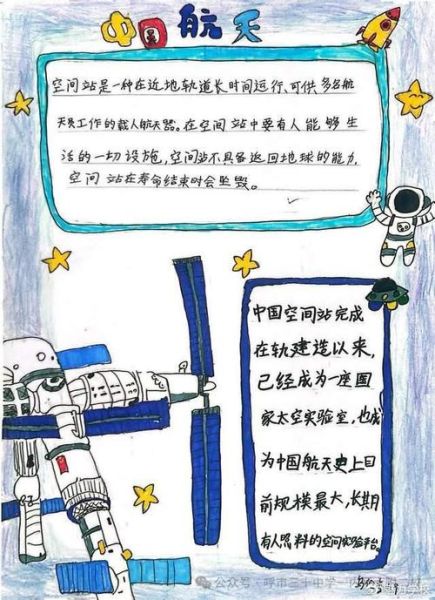 中国航天
空间站是一种在近地轨道长时间运行、可供多名航
天员工作的载人航天器。在空间站中要有人能够生
活的一切设施,空间站不具备返回地球的能力,
空间站在寿命结束时会坠毁。
中国空间站完成
在轨建造以来,
已经成为一座国
家太空实验室,也成
为中国航天史上目
前规模最大,长期
有人照料的空间实验平台。
公众号·呼市三十中学